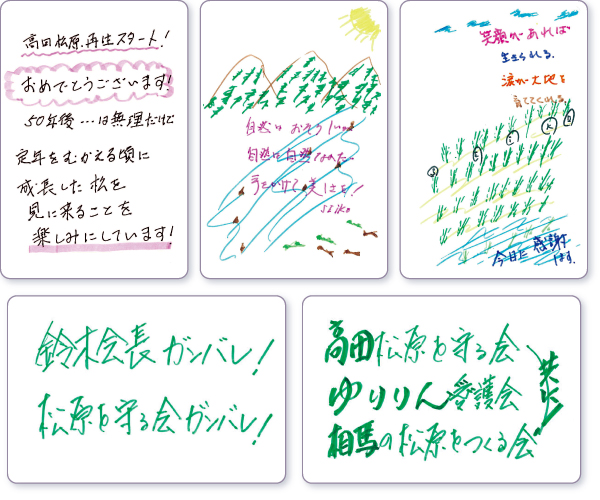 高田松原再生スタート!
おめでとうございます!
50年後…は無理だけど
定年をむかえる頃に
成長した松を
見に来ることを
楽しみにしています!
自然は
自然は
手をかけて
笑顔があれば
生きられる。
涙が大地を
育ててくれる。
今日に感謝
します。
鈴木会長ガンバレ!
松原を守る会ガンバレ!
高田松原を守る会
ゆりりん愛護会
相馬の松原をつくる会